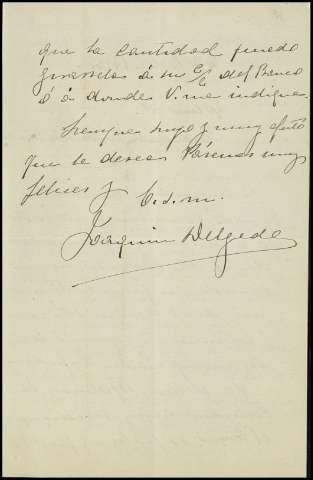 que la cantidad puedo
girarsela á su C/C del Banco
ó á donde V. me indique.
Siempre suyo y muy afecto
que le desea Páscuas muy
felices y b. s. m.
Joaquin Delgado